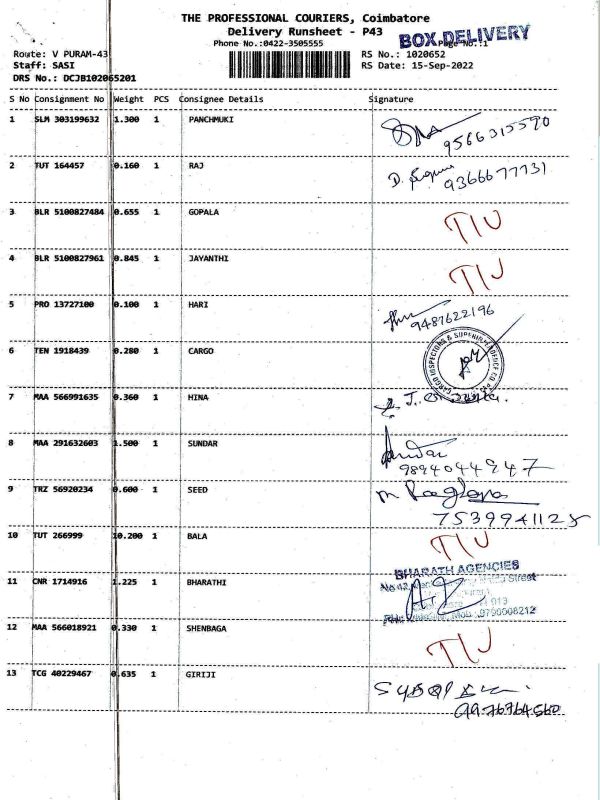 THE PROFESSIONAL COURIERS, Coimbatore
Delivery Runsheet - P43
BOX DELIVERY
Phone No.:0422-3505555
Page No.:1
Route: V PURAM-43
RS No.: 1020652
Staff: SASI
RS Date: 15-Sep-2022
DRS No.: DCJB102065201
S No Consignment No Weight PCS Consignee Details Signature
1 SLM 303199632 1.300 1 PANCHMUKI
9566315590
2 TUT 164457 0.160 1 RAJ
D.
9366677731
3 BLR 5100827484 0.655 1 GOPALA T/U
4 BLR 5100827961 0.845 1 JAYANTHI T/U
5 PRO 13727100 0.100 1 HARI
9487622196
6 TEN 1918439 0.280 1 CARGO
CARGO INSPECTORS & SUPERINTENDENCE CO
7 MAA 566991635 0.360 1 HINA
8 MAA 291632603 1.500 1 SUNDAR
9894044947
9 TRZ 56920234 0.600 1 SEED
7539941125
10 TUT 266999 10.200 1 BALA T/U
11 CNR 1714916 1.225 1 BHARATHI
BHARATH AGENCIES
No 42
Street
9790008212
12 MAA 566018921 0.330 1 SHENBAGA T/U
13 TCG 40229467 0.635 1 GIRIJI
9976764560